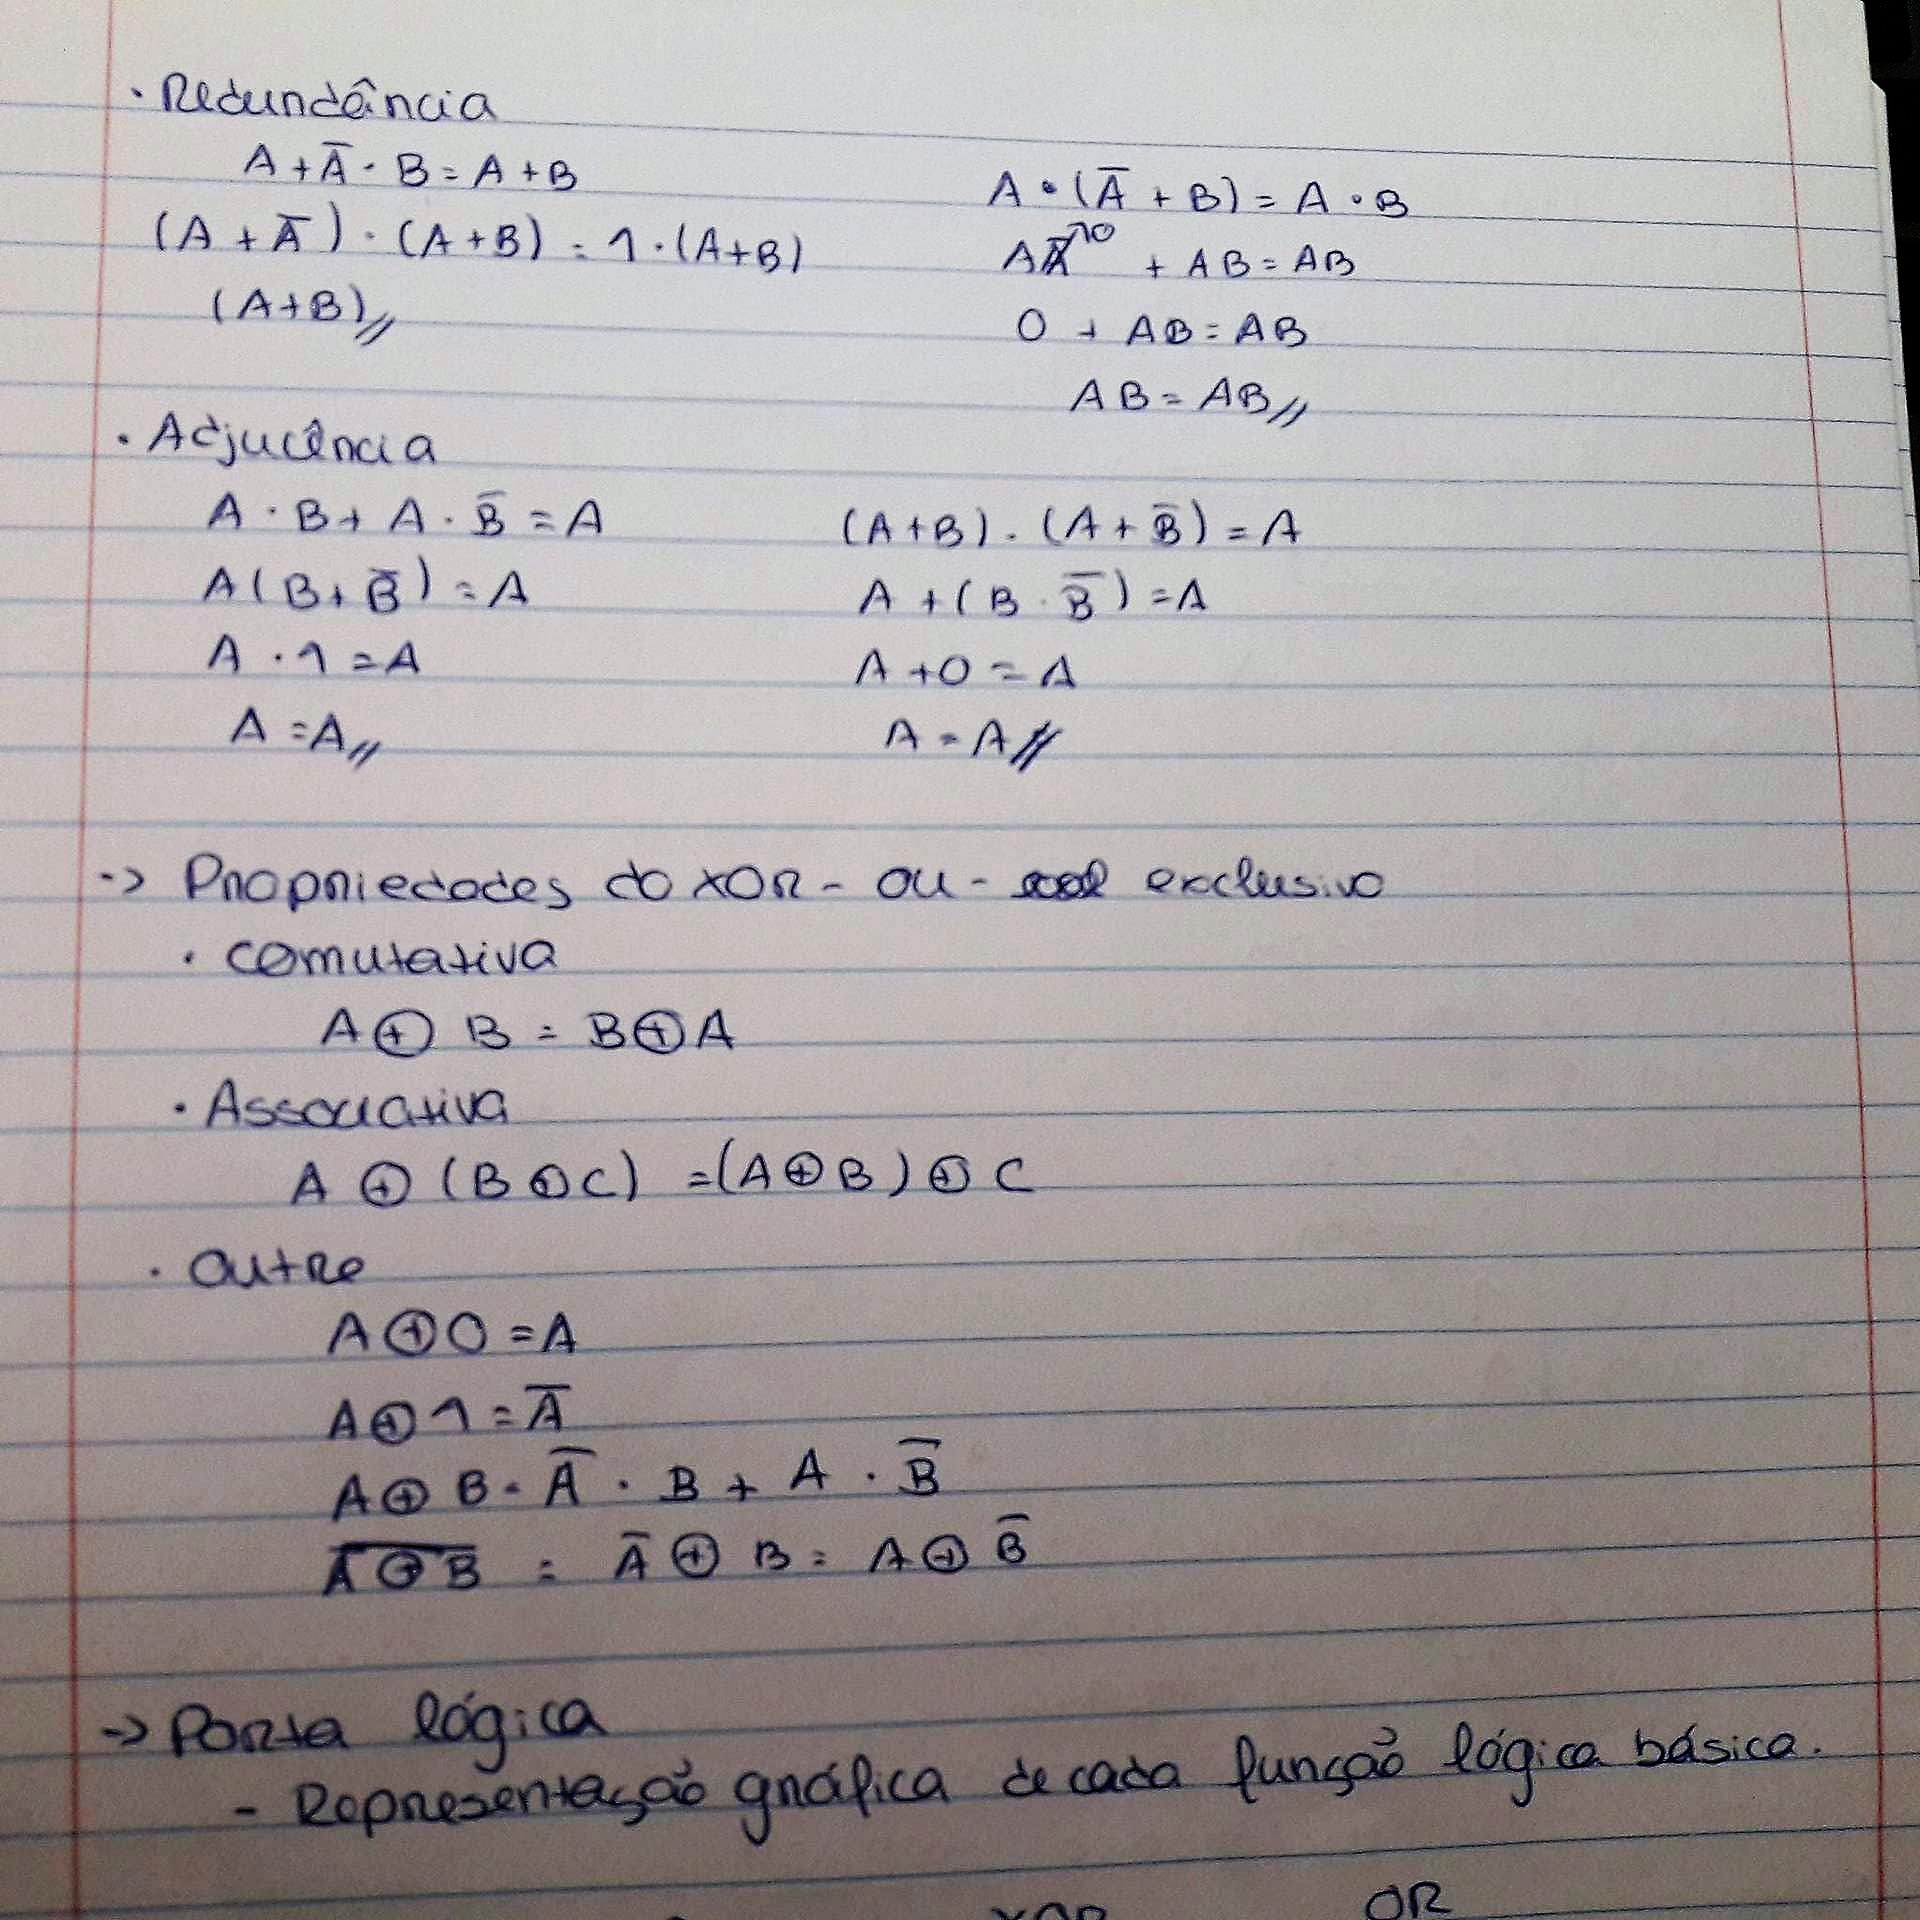 · Redundância
A + A̅ · B = A + B
(A + A̅) · (A + B) = 1 · (A + B)
(A + B)//
A · (A̅ + B) = A · B
AA̅↗0 + AB = AB
0 + AB = AB
AB = AB//
· Adjucência
A · B + A · B̅ = A
A(B + B̅) = A
A · 1 = A
A = A//
(A + B) · (A + B̅) = A
A + (B · B̅) = A
A + 0 = A
A = A//
-> Propriedades do XOR - OU - exclusivo
· comutativa
A ⊕ B = B ⊕ A
· Associativa
A ⊕ (B ⊕ C) = (A ⊕ B) ⊕ C
· Outre
A ⊕ 0 = A
A ⊕ 1 = A̅
A ⊕ B = A̅ · B + A · B̅
A̅ ̅⊕̅ ̅B̅ = A̅ ⊕ B = A ⊕ B̅
-> Porta lógica
- Representação gráfica de cada função lógica básica.
XOR OR